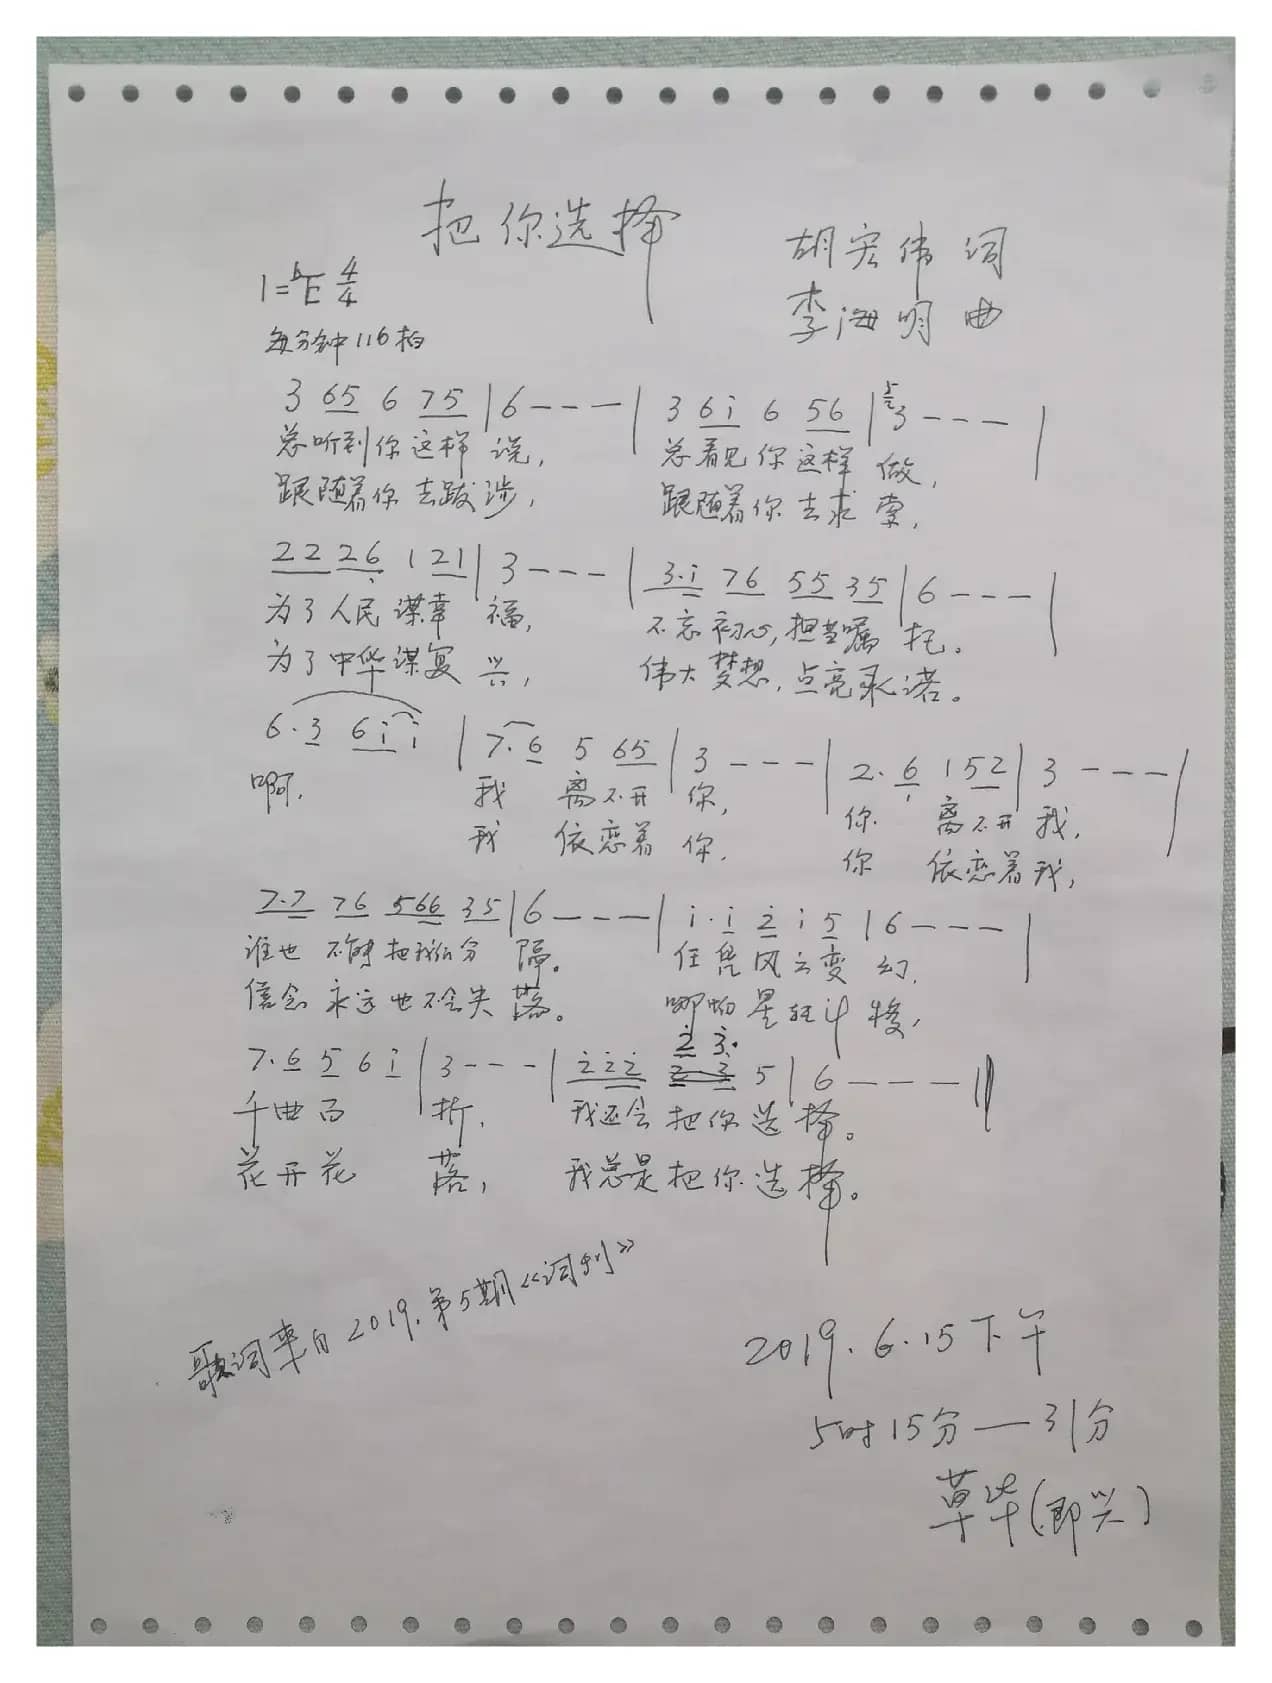 把你选择
胡宏伟 词
1=♭E 4/4
李海明 曲
每分钟116拍
3 65 6 75 | 6 - - - | 3 6i 6 56 | 5 3 - - - |
总听到你这样 说, 总看见你这样 做,
跟随着你去跋涉, 跟随着你去求 索,
22 26 1 21 | 3 - - - | 3·i 76 55 35 | 6 - - - |
为了人民谋幸 福, 不忘初心,担当嘱 托。
为了中华谋复 兴, 伟大梦想,点亮承诺。
6·3 6i i | 7·6 5 65 | 3 - - - | 2·6 1 52 | 3 - - - |
啊, 我 离不开 你, 你 离不开 我,
我 依恋着 你, 你 依恋着 我,
7·7 76 566 35 | 6 - - - | i·i 2 i 5 | 6 - - - |
谁也 不能 把我们分 隔。 任凭风云变 幻,
信念 永远 也不会失 落。 哪怕星转斗 移,
2 3·
7·6 5 6 i | 3 - - - | 222 5 | 6 - - - ||
千曲百 折, 我还会 把你选择。
花开花 落, 我总是把你选择。
歌词来自2019.第5期《词刊》
2019.6.15下午
5时15分—31分
草毕(即兴)